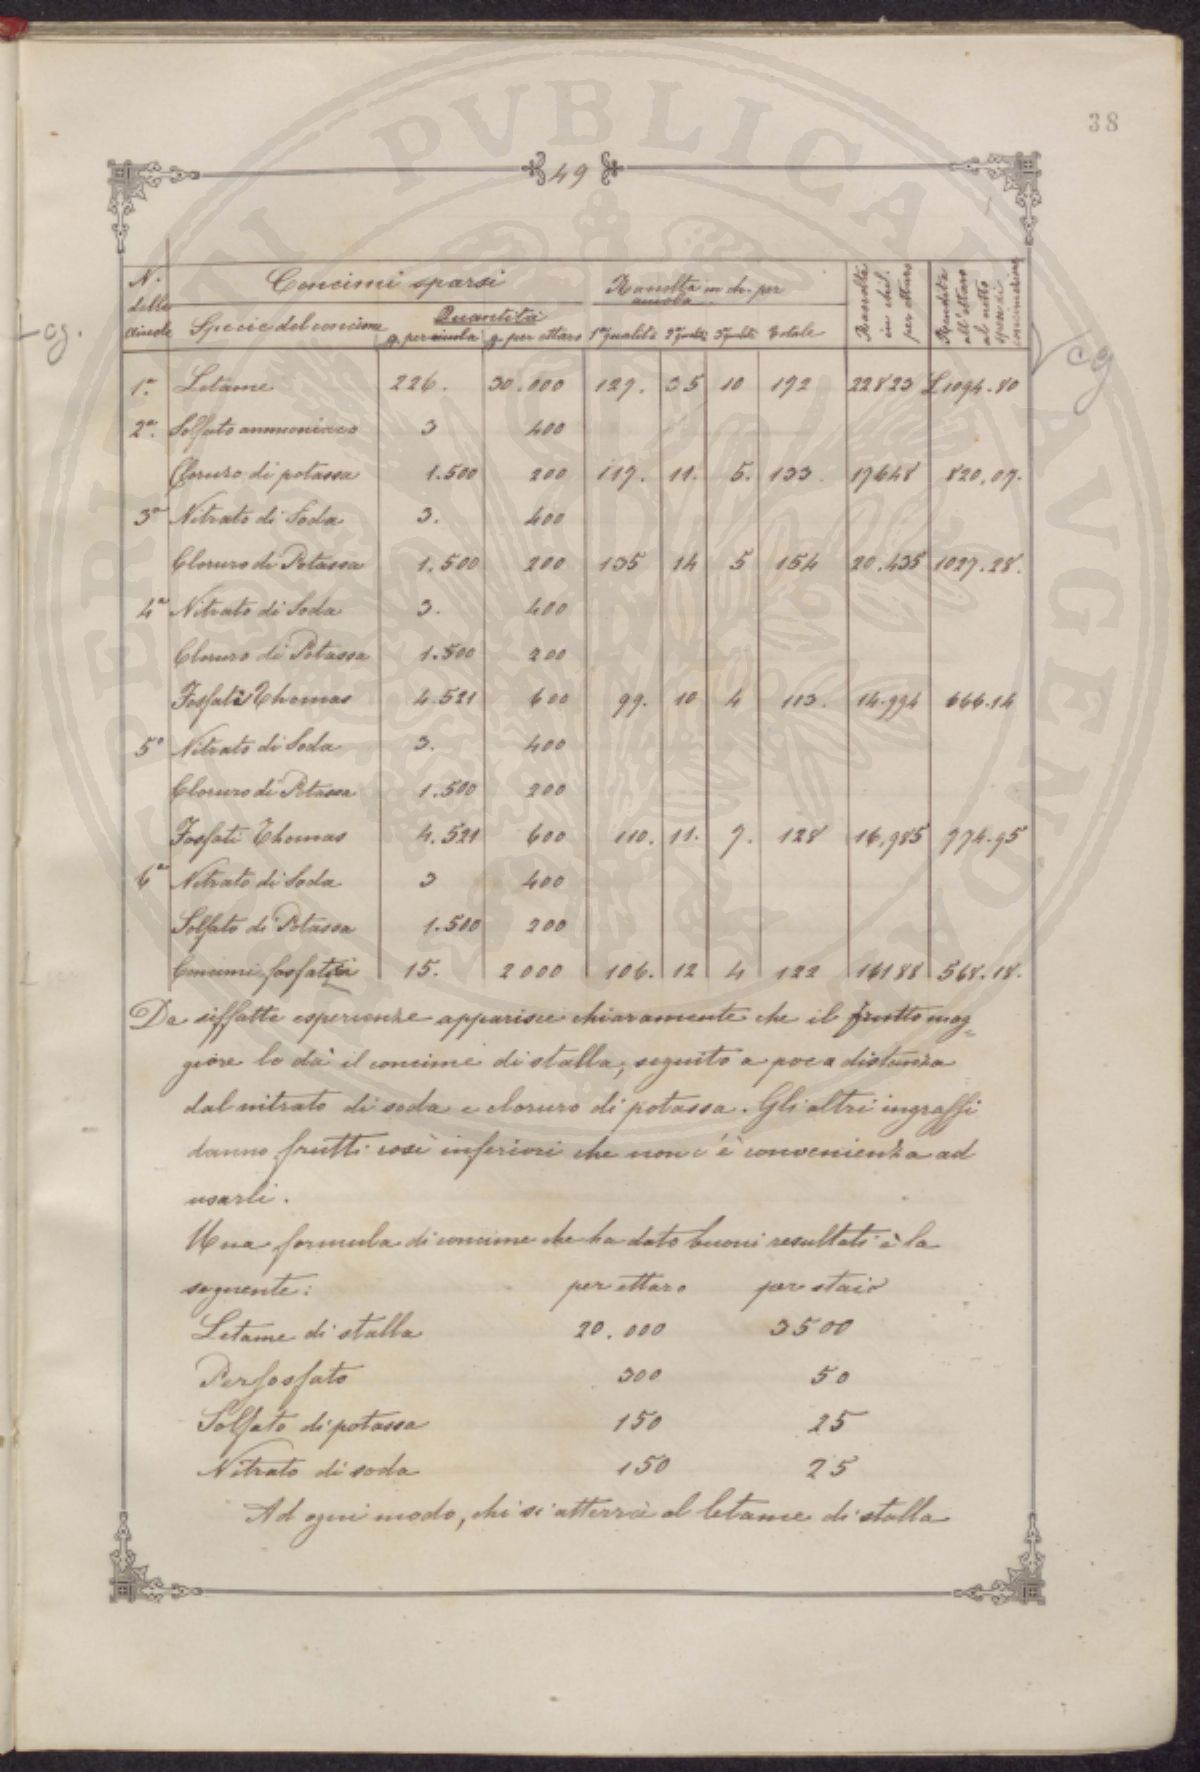 38
49
N. delle aiuole | Concimi sparsi | Raccolta in ch. per aiuola | Raccolta in chil. per ettaro | Rendita all'ettaro al netto spese di concimazione
Specie del concime | Quantità g. per aiuola | g. per ettaro | 1ª qualità | 2ª qualità | 3ª qualità | Totale
cg.
cg
1ª. Letame 226. 30.000 127. 35 10 172 22823 £1094.80
2ª. Solfato ammoniaco 3 400
Cloruro di potassa 1.500 200 117. 11. 5. 133. 17648 820.07.
3ª Nitrato di Soda 3. 400
Cloruro di Potassa 1.500 200 135 14 5 154 20.435 1027.28.
4ª Nitrato di Soda 3. 400
Cloruro di Potassa 1.500 200
Fosfati Thomas 4.521 600 99. 10 4 113. 14.994 666.14
5ª Nitrato di Soda 3. 400
Cloruro di Potassa 1.500 200
Fosfati Thomas 4.521 600 110. 11. 7. 128 16.985 774.95
6ª Nitrato di Soda 3 400
Solfato di Potassa 1.500 200
Concimi fosfatici 15. 2000 106. 12 4 122 16188 568.18.
Da siffatte esperienze apparisce chiaramente che il frutto mag=
giore lo dà il concime di stalla, seguito a poca distanza
dal nitrato di soda e cloruro di potassa. Gli altri ingrassi
danno frutti così inferiori che non c'è convenienza ad
usarli.
Una formula di concime che ha dato buoni resultati è la
seguente: per ettaro per staio
Letame di stalla 20.000 3500
Perfosfato 300 50
Solfato di potassa 150 25
Nitrato di soda 150 25
Ad ogni modo, chi si atterrà al letame di stalla
PUBLICAE
AVGENDA